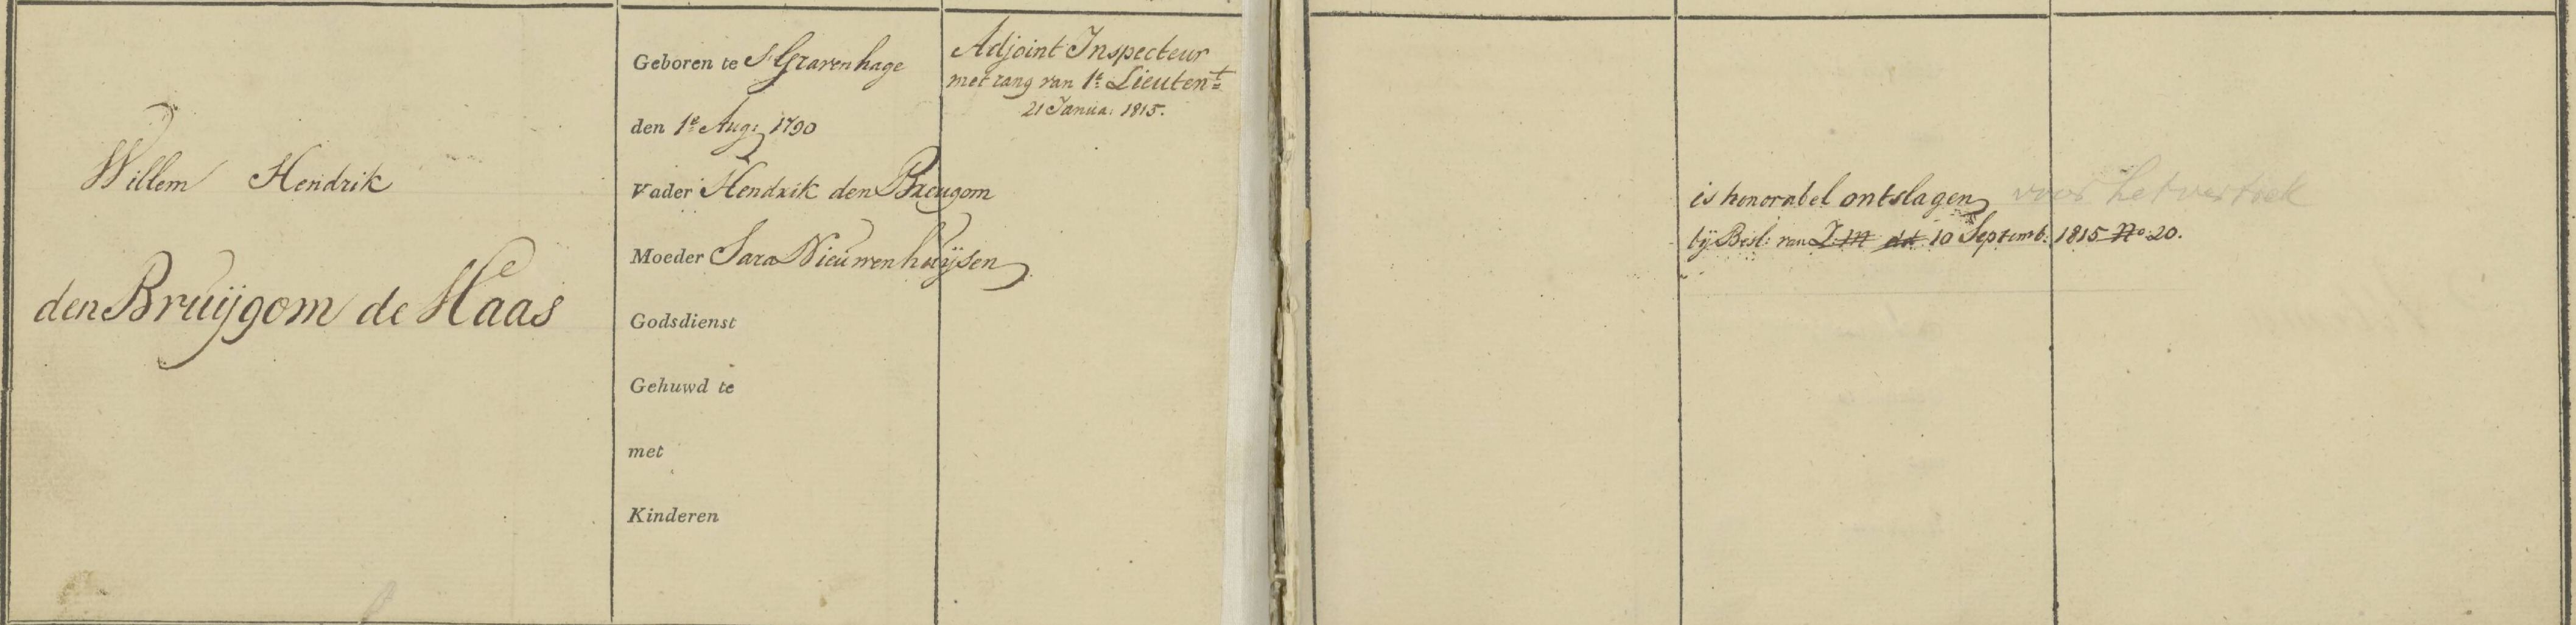 Willem Hendrik
den Bruijgom de Haas
Geboren te s'Gravenhage
den 1e Aug: 1790
Vader Hendrik den Breugom
Moeder Sara Nieuwenhuijsen
Godsdienst
Gehuwd te
met
Kinderen
Adjoint Inspecteur
met rang van 1e Lieutent
21 Janua: 1815.
is honorabel ontslagen voor het vertrek
bij Besl: van Z.M dd 10 Septemb: 1815 No 20.